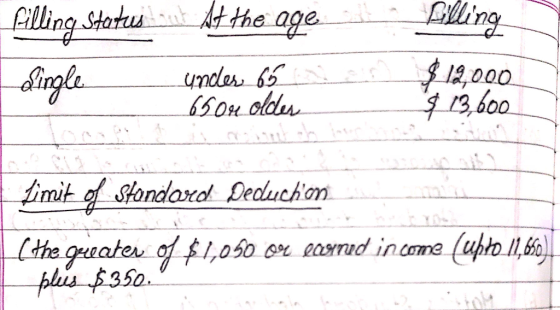 Filling Status At the age Filling
Single under 65 $ 12,000
65 or older $ 13,600
Limit of Standard Deduction
(the greater of $1,050 or earned income (upto 11,650)
plus $350.